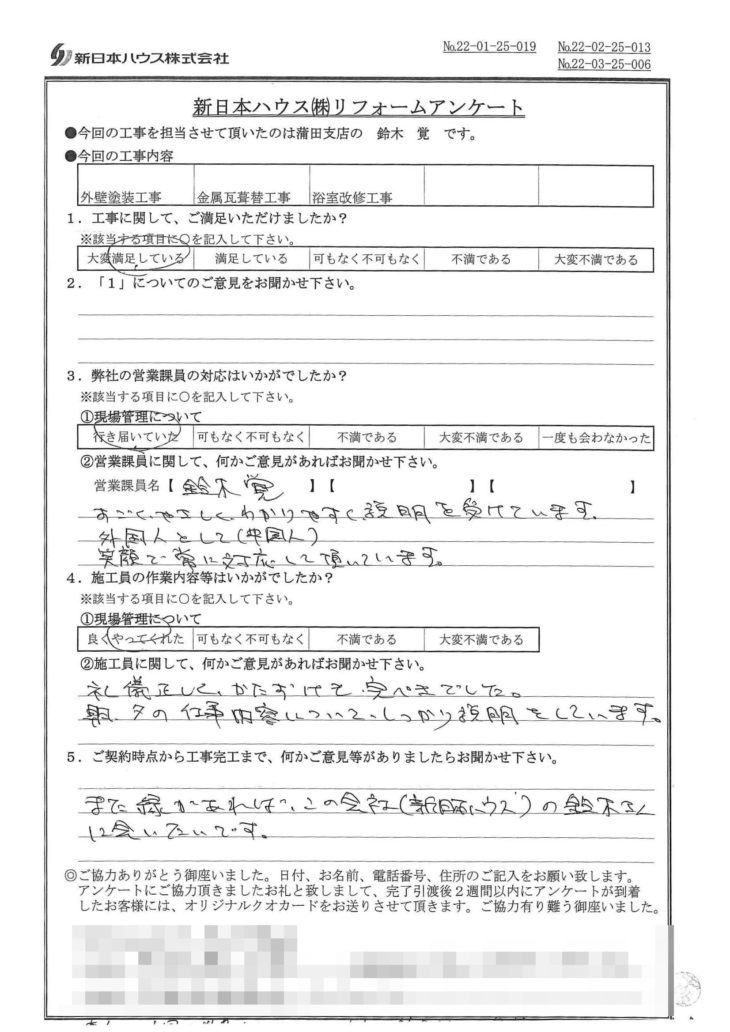 新日本ハウス株式会社
№22-01-25-019 №22-02-25-013
№22-03-25-006
新日本ハウス㈱リフォームアンケート
●今回の工事を担当させて頂いたのは蒲田支店の 鈴木 覚 です。
●今回の工事内容
外壁塗装工事 金属瓦葺替工事 浴室改修工事
1．工事に関して、ご満足いただけましたか？
※該当する項目に○を記入して下さい。
大変満足している 満足している 可もなく不可もなく 不満である 大変不満である
2．「1」についてのご意見をお聞かせ下さい。
3．弊社の営業課員の対応はいかがでしたか？
※該当する項目に○を記入して下さい。
①現場管理について
行き届いていた 可もなく不可もなく 不満である 大変不満である 一度も会わなかった
②営業課員に関して、何かご意見があればお聞かせ下さい。
営業課員名【 鈴木 覚 】【 】【 】
すごく、やさしく、わかりやすく説明を受けています。
外国人として(中国人)
笑顔で常に対応して頂いています。
4．施工員の作業内容等はいかがでしたか？
※該当する項目に○を記入して下さい。
①現場管理について
良くやってくれた 可もなく不可もなく 不満である 大変不満である
②施工員に関して、何かご意見があればお聞かせ下さい。
礼儀正しく、かたずけも完ぺきでした。
朝、夕の仕事内容について、しっかり説明をしています。
5．ご契約時点から工事完工まで、何かご意見等がありましたらお聞かせ下さい。
また縁があれば、この会社(新日本ハウス)の鈴木さん
に会いたいです。
◎ご協力ありがとう御座いました。日付、お名前、電話番号、住所のご記入をお願い致します。
アンケートにご協力頂きましたお礼と致しまして、完了引渡後2週間以内にアンケートが到着
したお客様には、オリジナルクオカードをお送りさせて頂きます。ご協力有り難う御座いました。